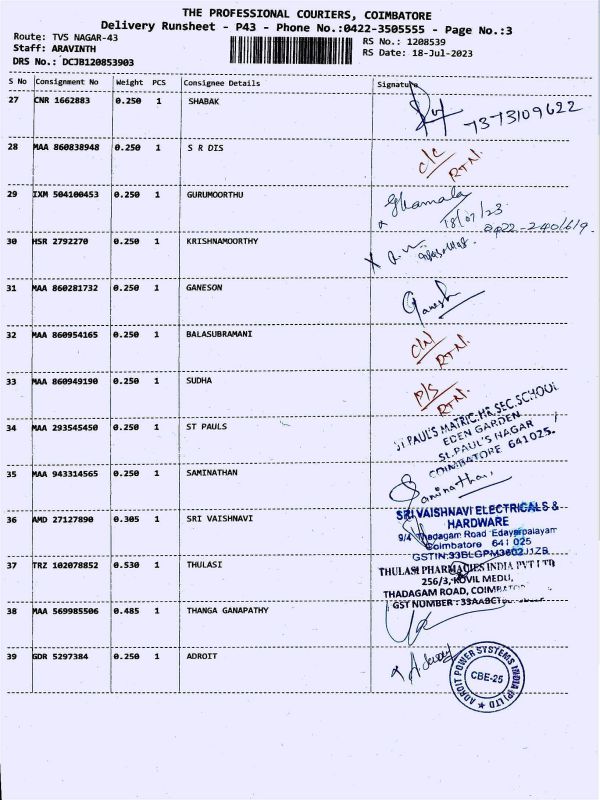 THE PROFESSIONAL COURIERS, COIMBATORE
Delivery Runsheet - P43 - Phone No.:0422-3505555 - Page No.:3
Route: TVS NAGAR-43
RS No.: 1208539
Staff: ARAVINTH
RS Date: 18-Jul-2023
DRS No.: DCJB120853903
S No Consignment No Weight PCS Consignee Details Signature
27 CNR 1662883 0.250 1 SHABAK
7373109622
28 MAA 860838948 0.250 1 S R DIS
C/C
RTN.
29 IXM 504100453 0.250 1 GURUMOORTHU
18/07/23
30 HSR 2792270 0.250 1 KRISHNAMOORTHY
31 MAA 860281732 0.250 1 GANESON
Ganesh
32 MAA 860954165 0.250 1 BALASUBRAMANI
RTN.
33 MAA 860949190 0.250 1 SUDHA
P/S
RTN.
34 MAA 293545450 0.250 1 ST PAULS
ST PAUL'S MATRIC.HR.SEC.SCHOOL
EDEN GARDEN
ST.PAUL'S NAGAR
COIMBATORE 641025.
35 MAA 943314565 0.250 1 SAMINATHAN
Saminathan
36 AMD 27127890 0.305 1 SRI VAISHNAVI
SRI VAISHNAVI ELECTRICALS &
HARDWARE
9/4 Thadagam Road Edayarpalayam
Coimbatore 641 025
GSTIN:33BLGPM3602J1ZB
37 TRZ 102078852 0.530 1 THULASI
THULASI PHARMACIES INDIA PVT LTD
256/3, KOVIL MEDU,
THADAGAM ROAD, COIMBATORE
GST NUMBER : 33AABCT
38 MAA 569985506 0.485 1 THANGA GANAPATHY
39 GDR 5297384 0.250 1 ADROIT
ADROIT POWER SYSTEMS INDIA (P) LTD
CBE-25